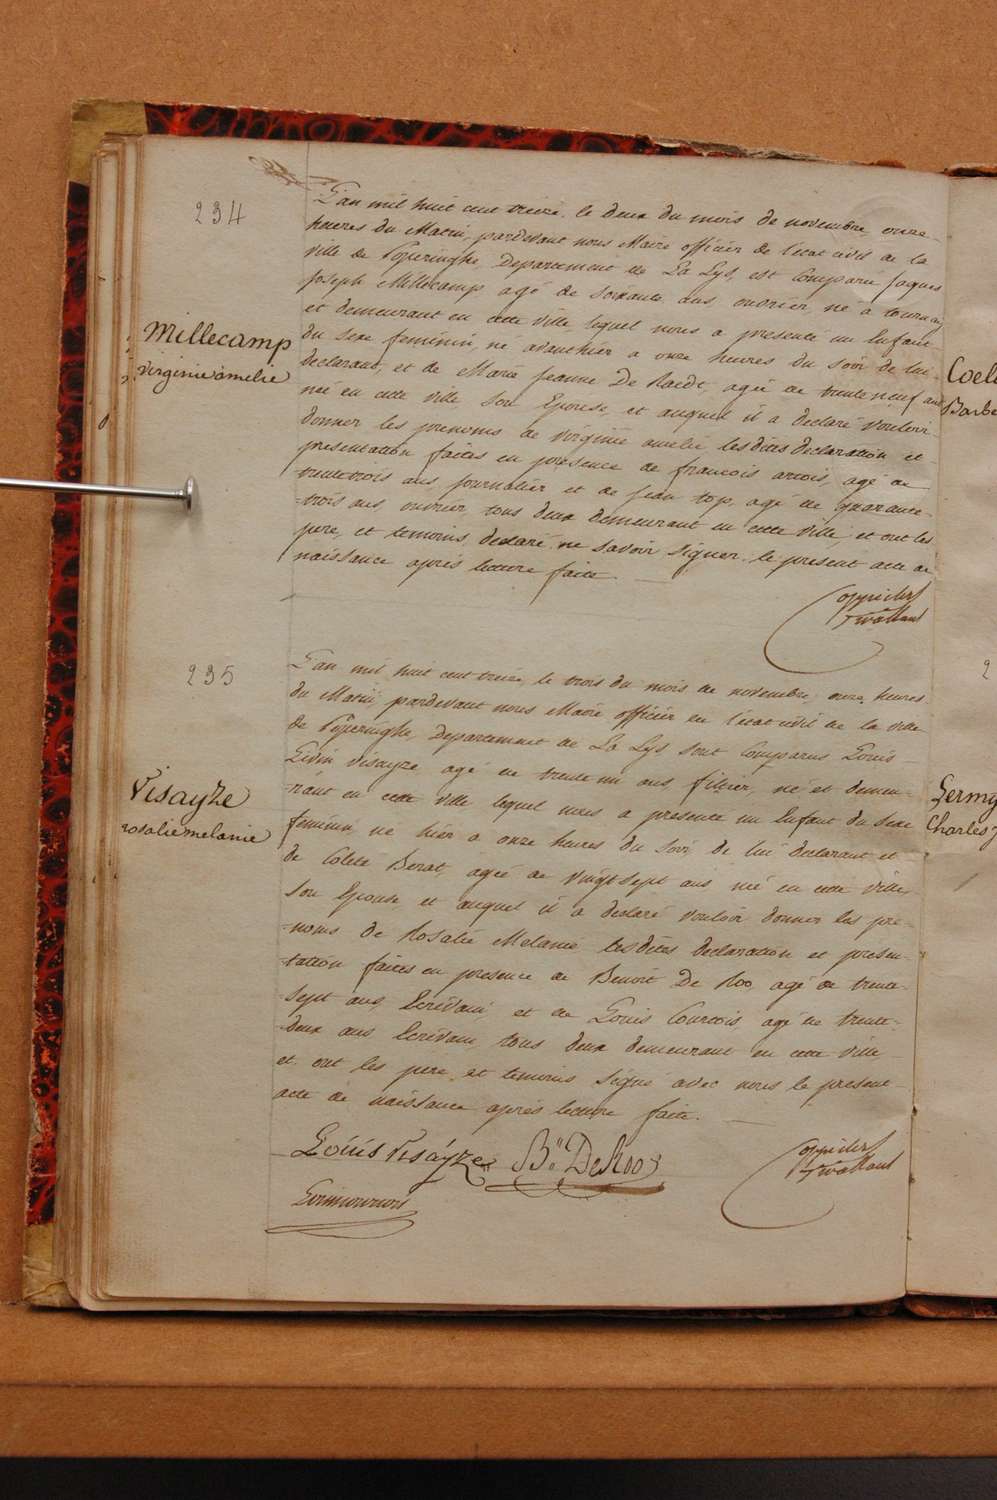 234
Millecamp
virginie amelie
L'an mil huit cent treize, le deux du mois de novembre, onze
heures du Matin, pardevant nous Maire officier de l'état civil de la
ville de Poperinghe, Departement de La Lys, est Comparu Jaques
Joseph Millecamp agé de soixante ans, ouvrier, né a tournay
et demeurant en cette ville lequel nous a presenté un Enfant
du sexe feminin, né avanthier a onze heures du soir de lui
declarant, et de Marie Jeanne De Raedt, agée de trente neuf ans
née en cette ville son Epouse, et auquel il a declaré vouloir
donner les prenoms de virginie amelie, les dites declaration et
presentation faites en presence de francois artois, agé de
trentetrois ans, journalier et de jean top, agé de quarante
-trois ans, ouvrier, tous deux demeurant en cette ville, et ont les
pere, et temoins, declaré ne savoir signer le present acte de
naissance après lecture faite.
235
Visayze
rosalie melanie
L'an mil huit cent treize, le trois du mois de novembre, onze heures
du Matin, pardevant nous Maire officier de l'état civil de la ville
de Poperinghe, Departement de La Lys sont Comparus Louis
Visayze agé de trente un ans, filtier, né et demeu-
-rant en cette ville lequel nous a presenté un Enfant du sexe
feminin, né hier a onze heures du soir de lui declarant et
de Coleté Berat, agée de vingt sept ans née en cette ville
son Epouse, et auquel il a declaré vouloir donner les pre-
-noms de Rosalie Melanie, les dites declaration et presen-
-tation faites en presence de Benoit De Roo, agé de trente-
-sept ans, Ecrivain, et de Louis Courtois agé de trente-
-deux ans Ecrivain, tous deux demeurant en cette ville
et ont les pere, et temoins signé avec nous le present
acte de naissance après lecture faite.
Louis Visayze
Bt. De Roo